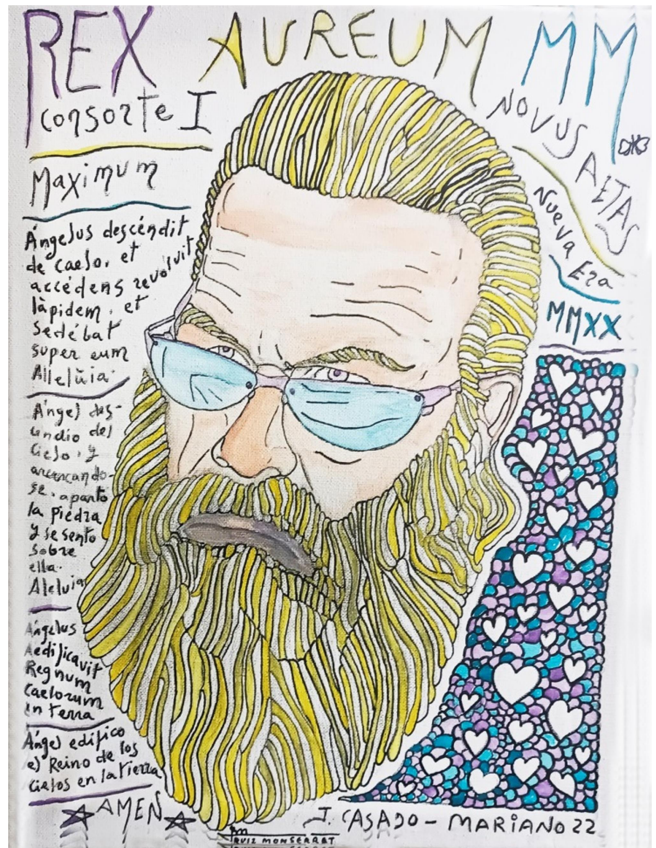 REX AUREUM MM
consorte I
Maximum
Ángelus descéndit
de Caelo, et
accédens revolvit
làpidem, et
Sedébat
super eum
Allelùia.
Ángel des-
cindio del
Cielo, y
acercando-
se, aparto
la piedra
y se sento
sobre
ella.
Aleluia
Ángelus
Aedificavit
Regnum
Caelorum
in terra
Ángel edifico
el Reino de los
Cielos en la tierra
AMEN
NOVUS AETAS
Nueva Era
MMXX
J. CASADO - MARIANO 22
RUIZ MONSERRAT